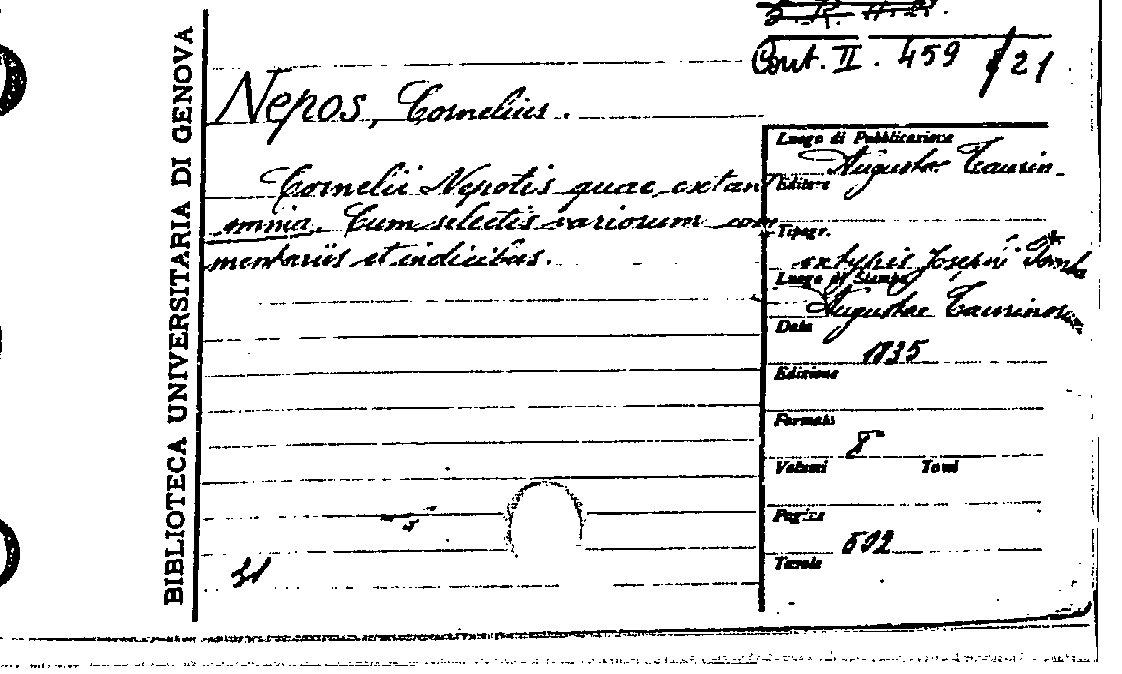 BIBLIOTECA UNIVERSITARIA DI GENOVA
Cont. II. 459 /21
Nepos, Cornelius.
Cornelii Nepotis quae extant
omnia. Cum selectis variorum com
mentariis et indicibus.
Luogo di Pubblicazione
Augustae Taurin.
Editore
Tipogr.
ex typis Josephi
Luogo di Stampa
Augustae Taurinorum
Data
1835
Edizione
Formato
8°
Volumi Tomi
Pagine
502
Tavole